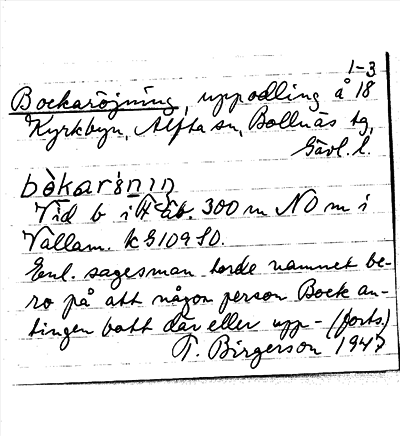 1-3
Bockaröjning, uppodling å 18
Kyrkbyn, Alfta sn, Bollnäs tg,
Gävl. l.
bòkarö̀nın
Vid b i 300 m NO m i
Vallam. k G109 SO.
Enl. sagesman torde namnet be-
ro på att någon person Bock an-
tingen bott där eller upp- (forts.)
T. Birgerson 1947